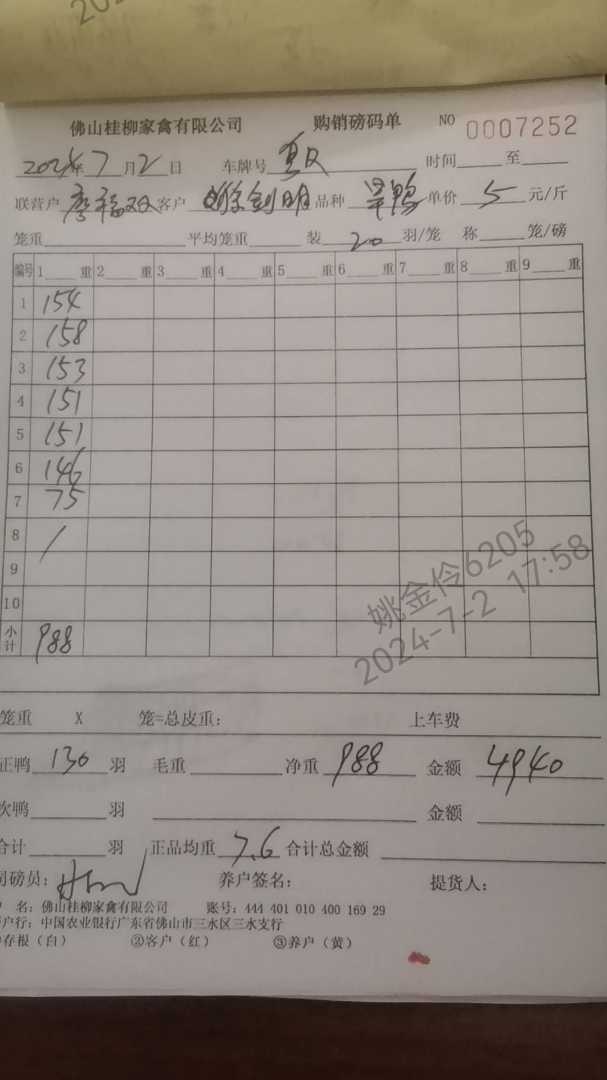 202
佛山桂柳家禽有限公司 购销磅码单 NO 0007252
2024年7月2日 车牌号 时间 至
联营户 廖福双 客户 剑明 品种 旱鸭 单价 5 元/斤
笼重 平均笼重 装 20 羽/笼 称 笼/磅
编号 1 重 2 重 3 重 4 重 5 重 6 重 7 重 8 重 9 重
1 154
2 158
3 153
4 151
5 151
6 146
7 75
8 /
9
10
小计 988
姚金伶6205
2024-7-2 17:58
笼重 X 笼=总皮重: 上车费
正鸭 130 羽 毛重 净重 988 金额 4940
次鸭 羽 金额
合计 羽 正品均重 7.6 合计总金额
司磅员: 养户签名: 提货人:
户 名: 佛山桂柳家禽有限公司 账号: 444 401 010 400 169 29
开户行: 中国农业银行广东省佛山市三水区三水支行
①存根（白） ②客户（红） ③养户（黄）